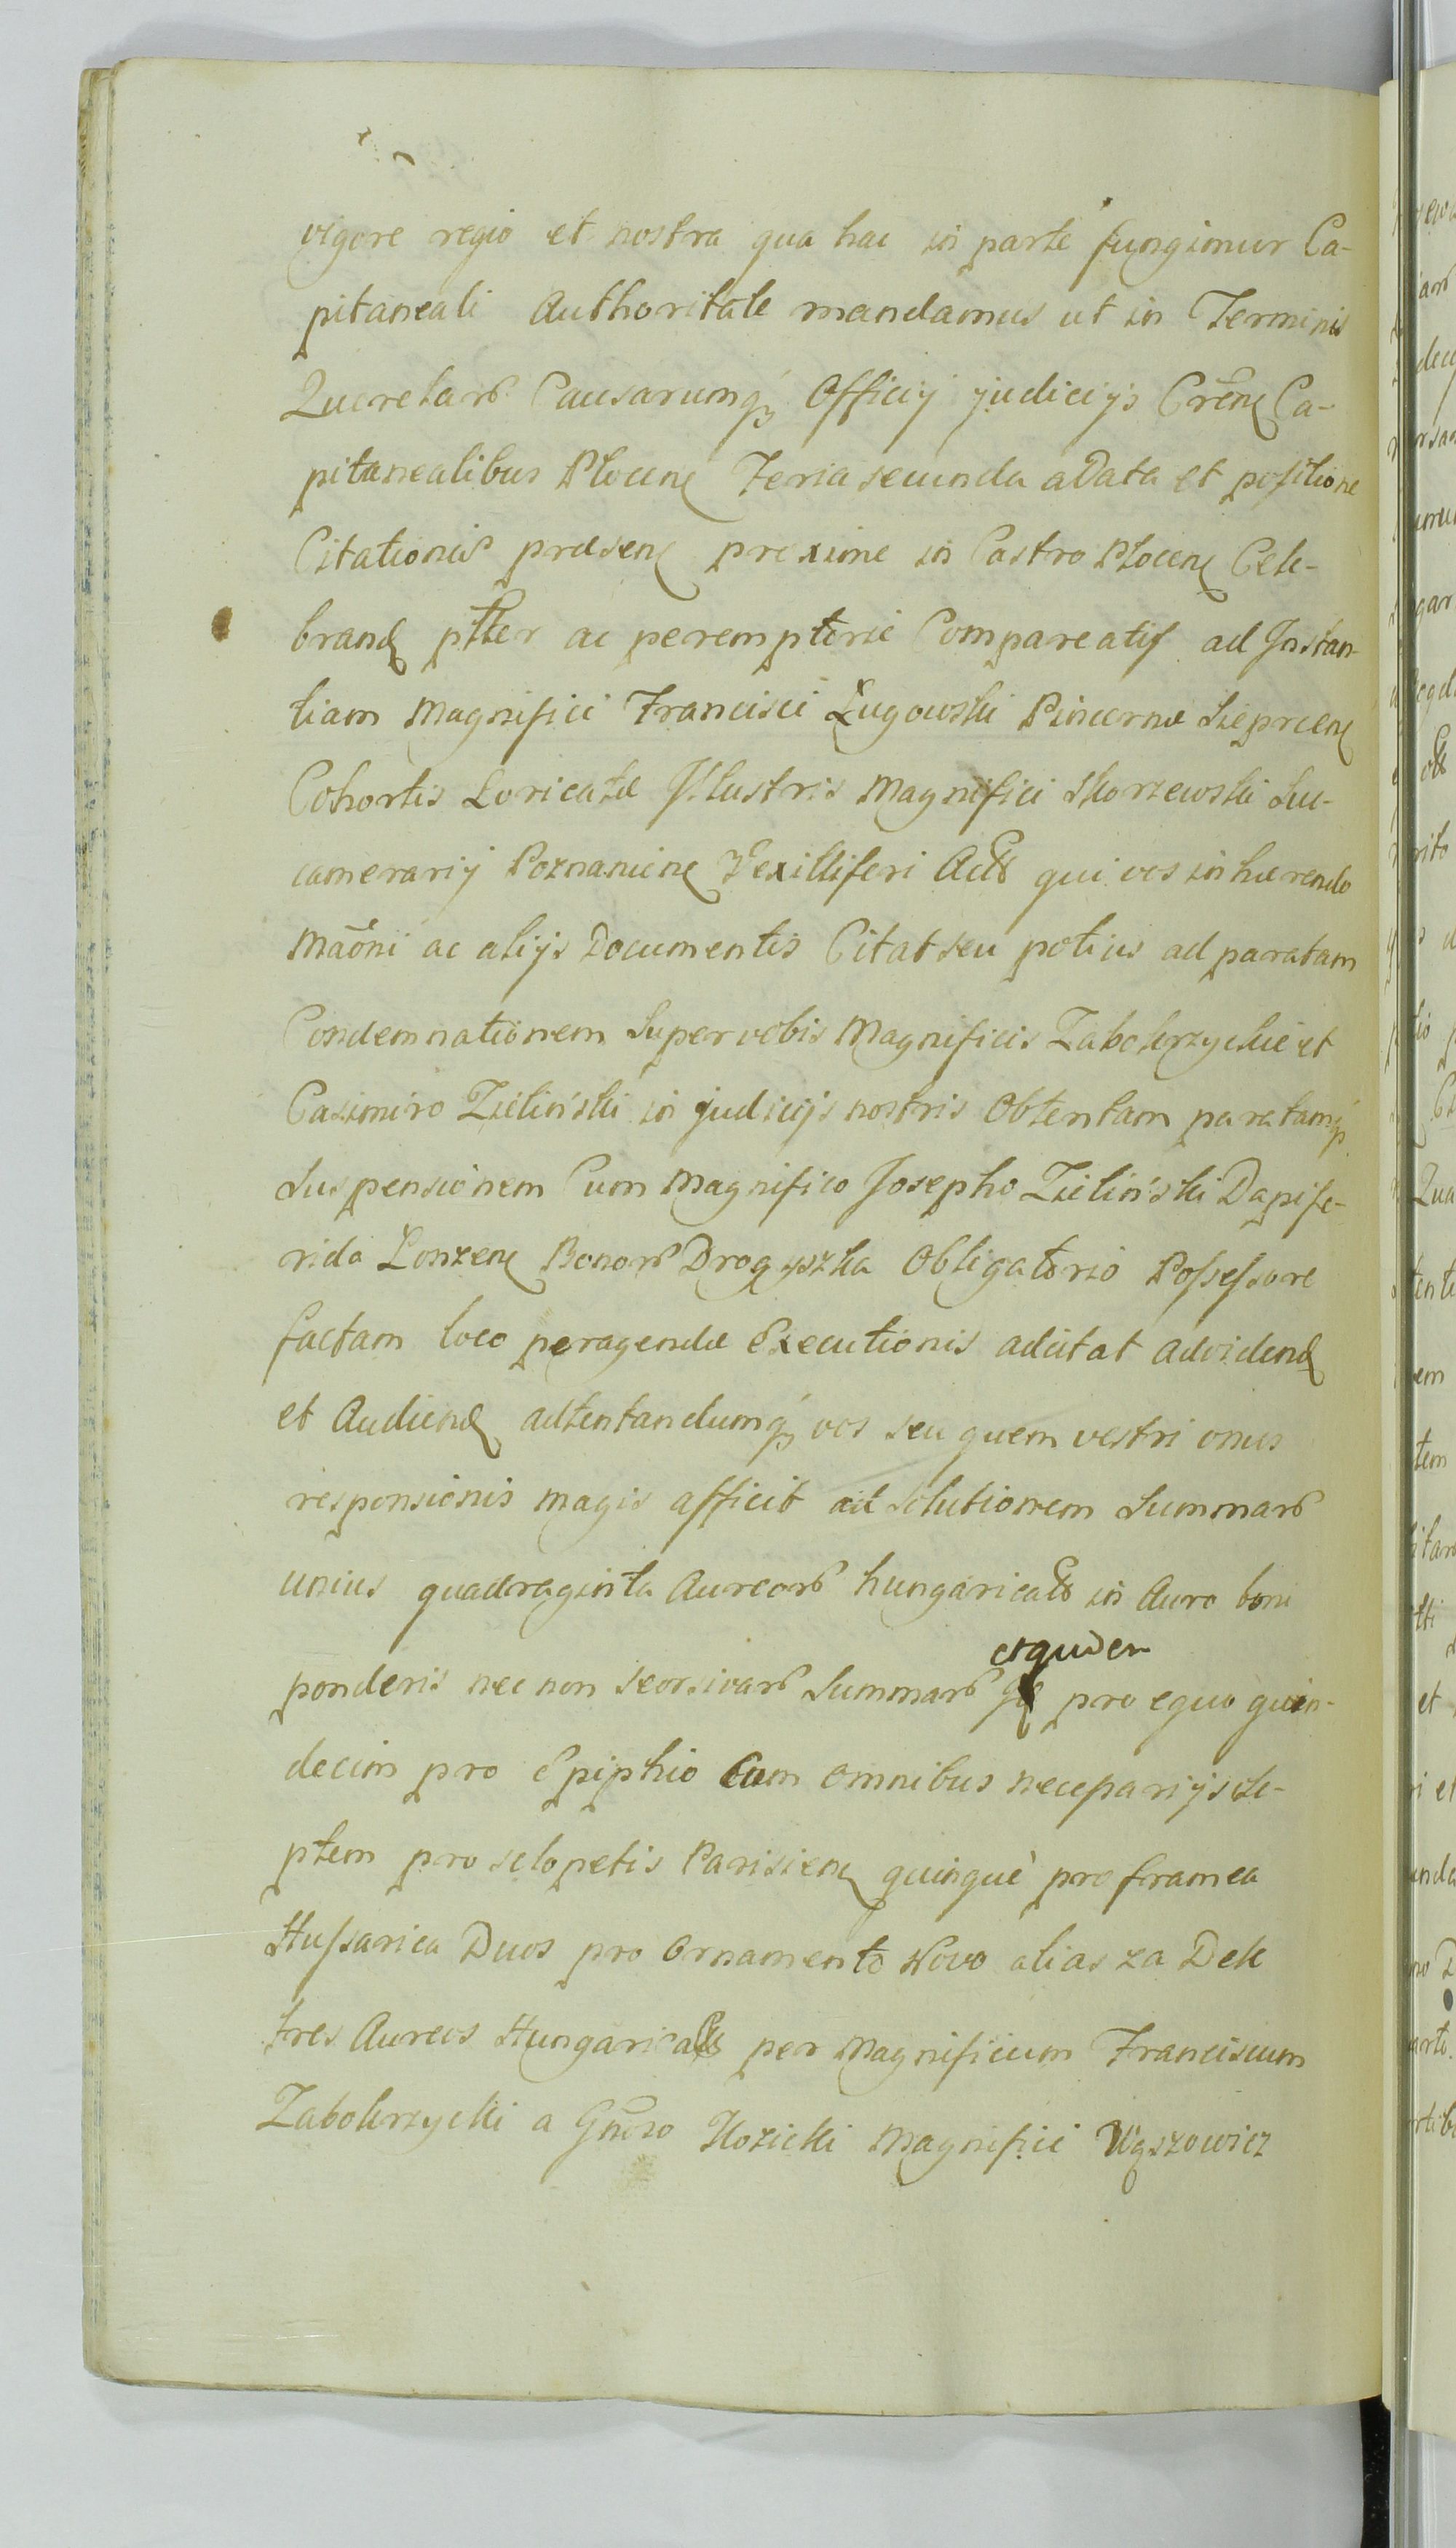 vigore regio et nostra qua hac in parte fungimur Ca-
pitaneali Authoritate mandamus ut in Terminis
Querelarꝝ Causarumqꝫ Officij judicijs Cren̄ Ca-
pitanealibus Plocen Feria secunda a Data et positione
Citationis præsen proxime in Castro Plocen Cele-
brand ptter ac peremptorie Compareatis ad Instan-
tiam Magnifici Francisci Ługowski Pincernæ Sieprcen
Cohortis Loricatæ Illustris Magnifici Skorzewski Suc-
camerarij Poznanien Vexilliferi Actꝝ qui vos inhærendo
Mãoni ac alijs Documentis Citat seu potius ad paratam
Condemnationem super vobis Magnificis Zabokrzyckie et
Casimiro Zieliński in judicijs nostris Obtentam paratamqꝫ
suspensionem Cum Magnifico Josepho Zieliński Dapife-
rida Łonzen Bonorꝝ Drogyszka Obligatorio Possessore
factam loco peragendæ Executionis adcitat ad vidend
et Audiend adtentandumqꝫ vos seu quem vestri onus
responsionis magis afficit ad solutionem Summarꝝ
unius quadraginta Aureorꝝ hungaricalꝝ in Auro boni
ponderis nec non seorsivarꝝ Summarꝝ
et quidem
pro equo quin-
decim pro Epiphio Cum omnibus necessarijs se-
ptem pro sclopetis Parisien quinque pro framea
Hussarica Duos pro Ornamento Novo alias za Dek
tres Aureos Hungaricalꝝ per Magnificum Franciscum
Zabokrzycki a Gnroso Kozicki Magnifici Wąszowicz